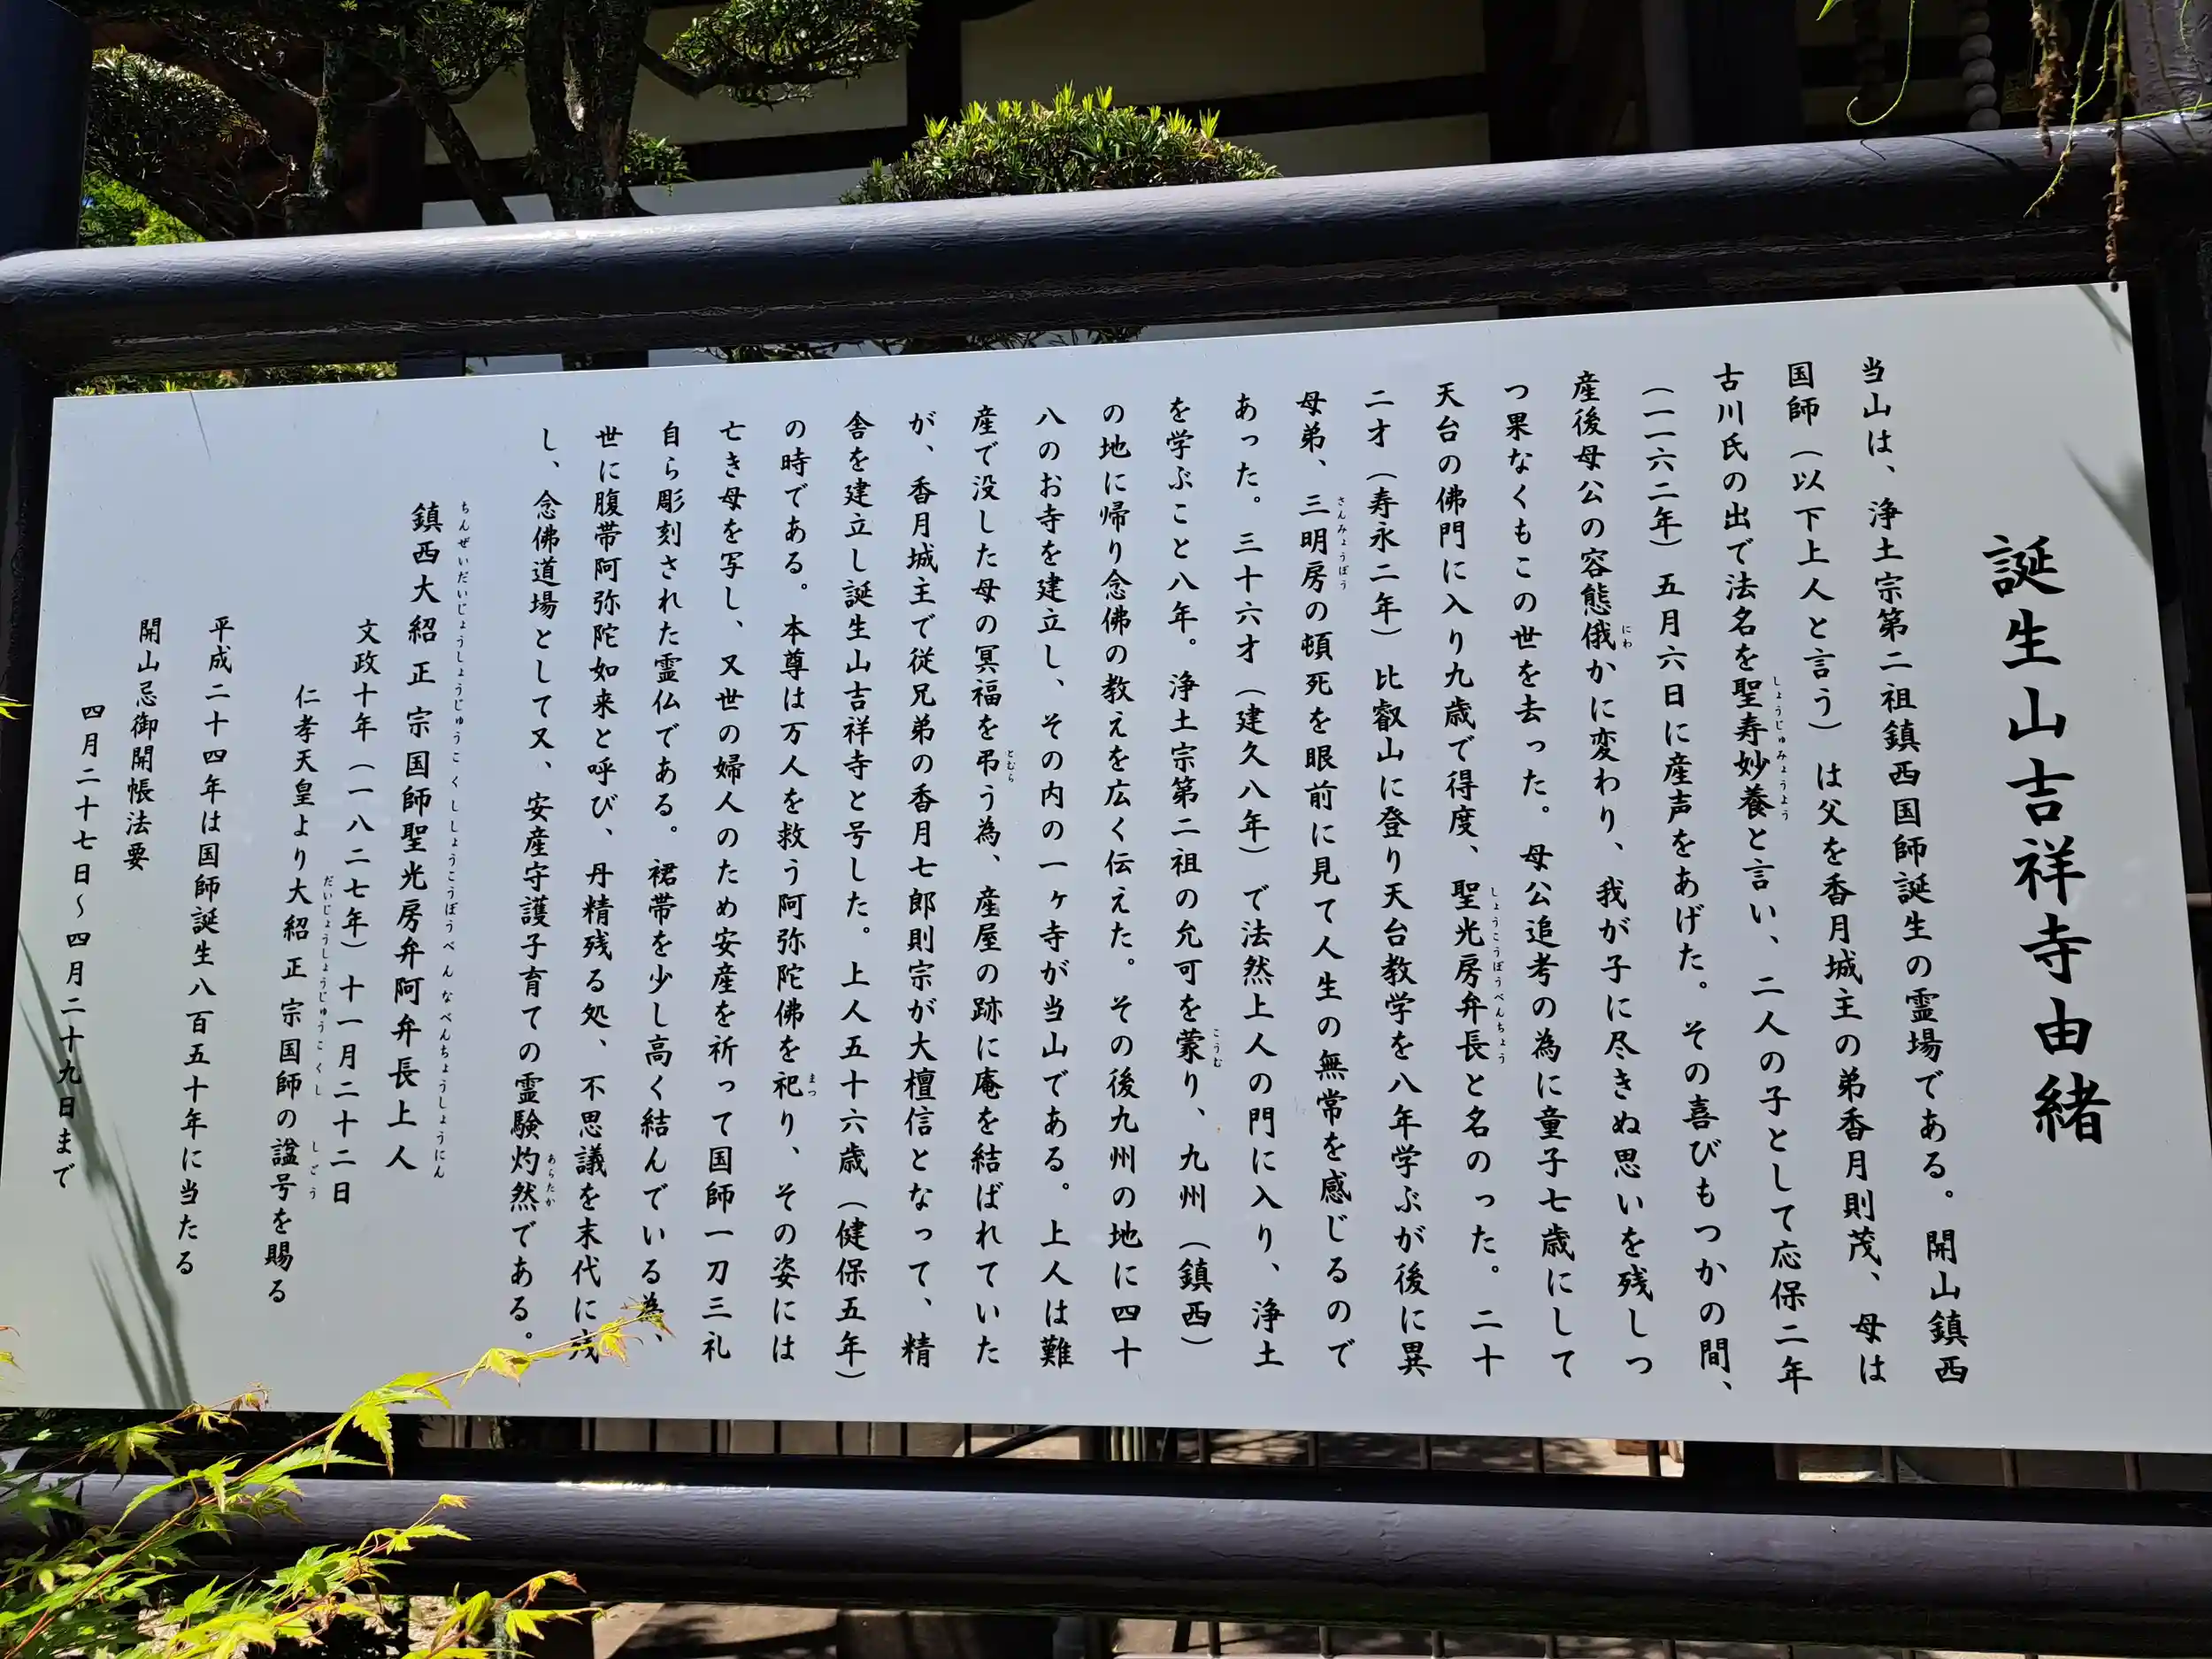 誕生山吉祥寺由緒
当山は、浄土宗第二祖鎮西国師誕生の霊場である。開山鎮西
国師（以下上人と言う）は父を香月城主の弟香月則茂、母は
古川氏の出で法名を聖寿妙養と言い、二人の子として応保二年
しょうじゅみょうよう
（一一六二年）五月六日に産声をあげた。その喜びもつかの間、
産後母公の容態俄かに変わり、我が子に尽きぬ思いを残しつ
にわ
つ果なくもこの世を去った。母公追考の為に童子七歳にして
天台の佛門に入り九歳で得度、聖光房弁長と名のった。二十
しょうこうぼうべんちょう
二才（寿永二年）比叡山に登り天台教学を八年学ぶが後に異
母弟、三明房の頓死を眼前に見て人生の無常を感じるので
さんみょうぼう
あった。三十六才（建久八年）で法然上人の門に入り、浄土
を学ぶこと八年。浄土宗第二祖の允可を蒙り、九州（鎮西）
こうむ
の地に帰り念佛の教えを広く伝えた。その後九州の地に四十
八のお寺を建立し、その内の一ヶ寺が当山である。上人は難
産で没した母の冥福を弔う為、産屋の跡に庵を結ばれていた
とむら
が、香月城主で従兄弟の香月七郎則宗が大檀信となって、精
舎を建立し誕生山吉祥寺と号した。上人五十六歳（健保五年）
の時である。本尊は万人を救う阿弥陀佛を祀り、その姿には
まつ
亡き母を写し、又世の婦人のため安産を祈って国師一刀三礼
自ら彫刻された霊仏である。裙帯を少し高く結んでいる為、
世に腹帯阿弥陀如来と呼び、丹精残る処、不思議を末代に残
し、念佛道場として又、安産守護子育ての霊験灼然である。
あらたか
鎮西大紹正宗国師聖光房弁阿弁長上人
ちんぜいだいじょうしょうじゅうこくししょうこうぼうべんなべんちょうしょうにん
文政十年（一八二七年）十一月二十二日
仁孝天皇より大紹正宗国師の諡号を賜る
だいじょうしょうじゅうこくし
しごう
平成二十四年は国師誕生八百五十年に当たる
開山忌御開帳法要
四月二十七日～四月二十九日まで